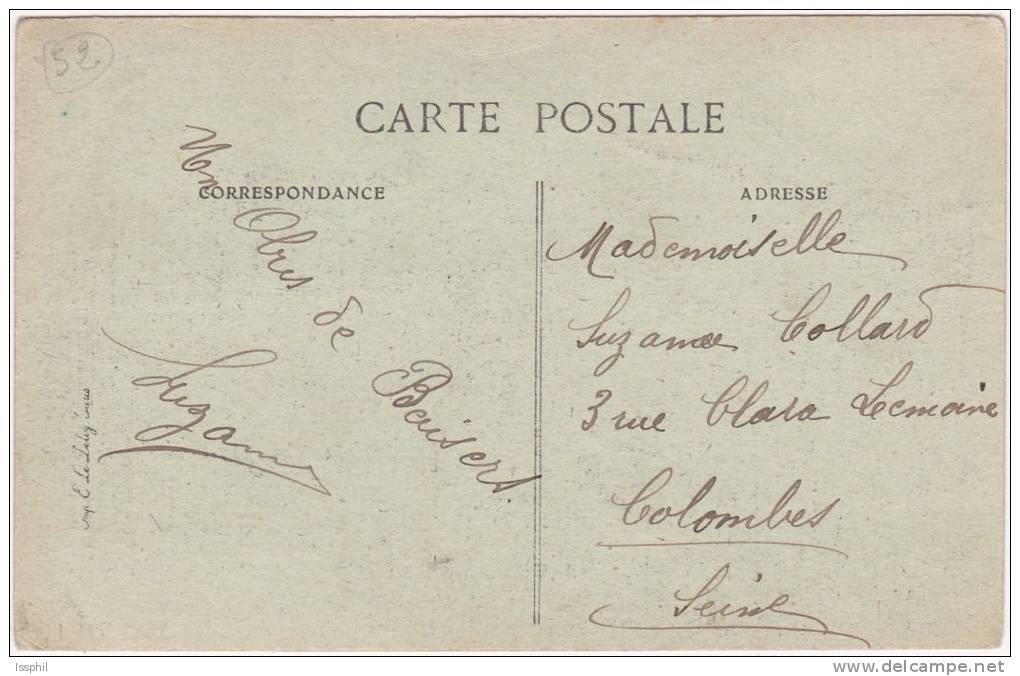 52
CARTE POSTALE
CORRESPONDANCE
ADRESSE
Un Obus de Baisers
Suzanne
Mademoiselle
Suzanne Collard
3 rue Clara Lemoine
Colombes
Seine
Imp. E. Le Deley Paris
Issphil
www.delcampe.net